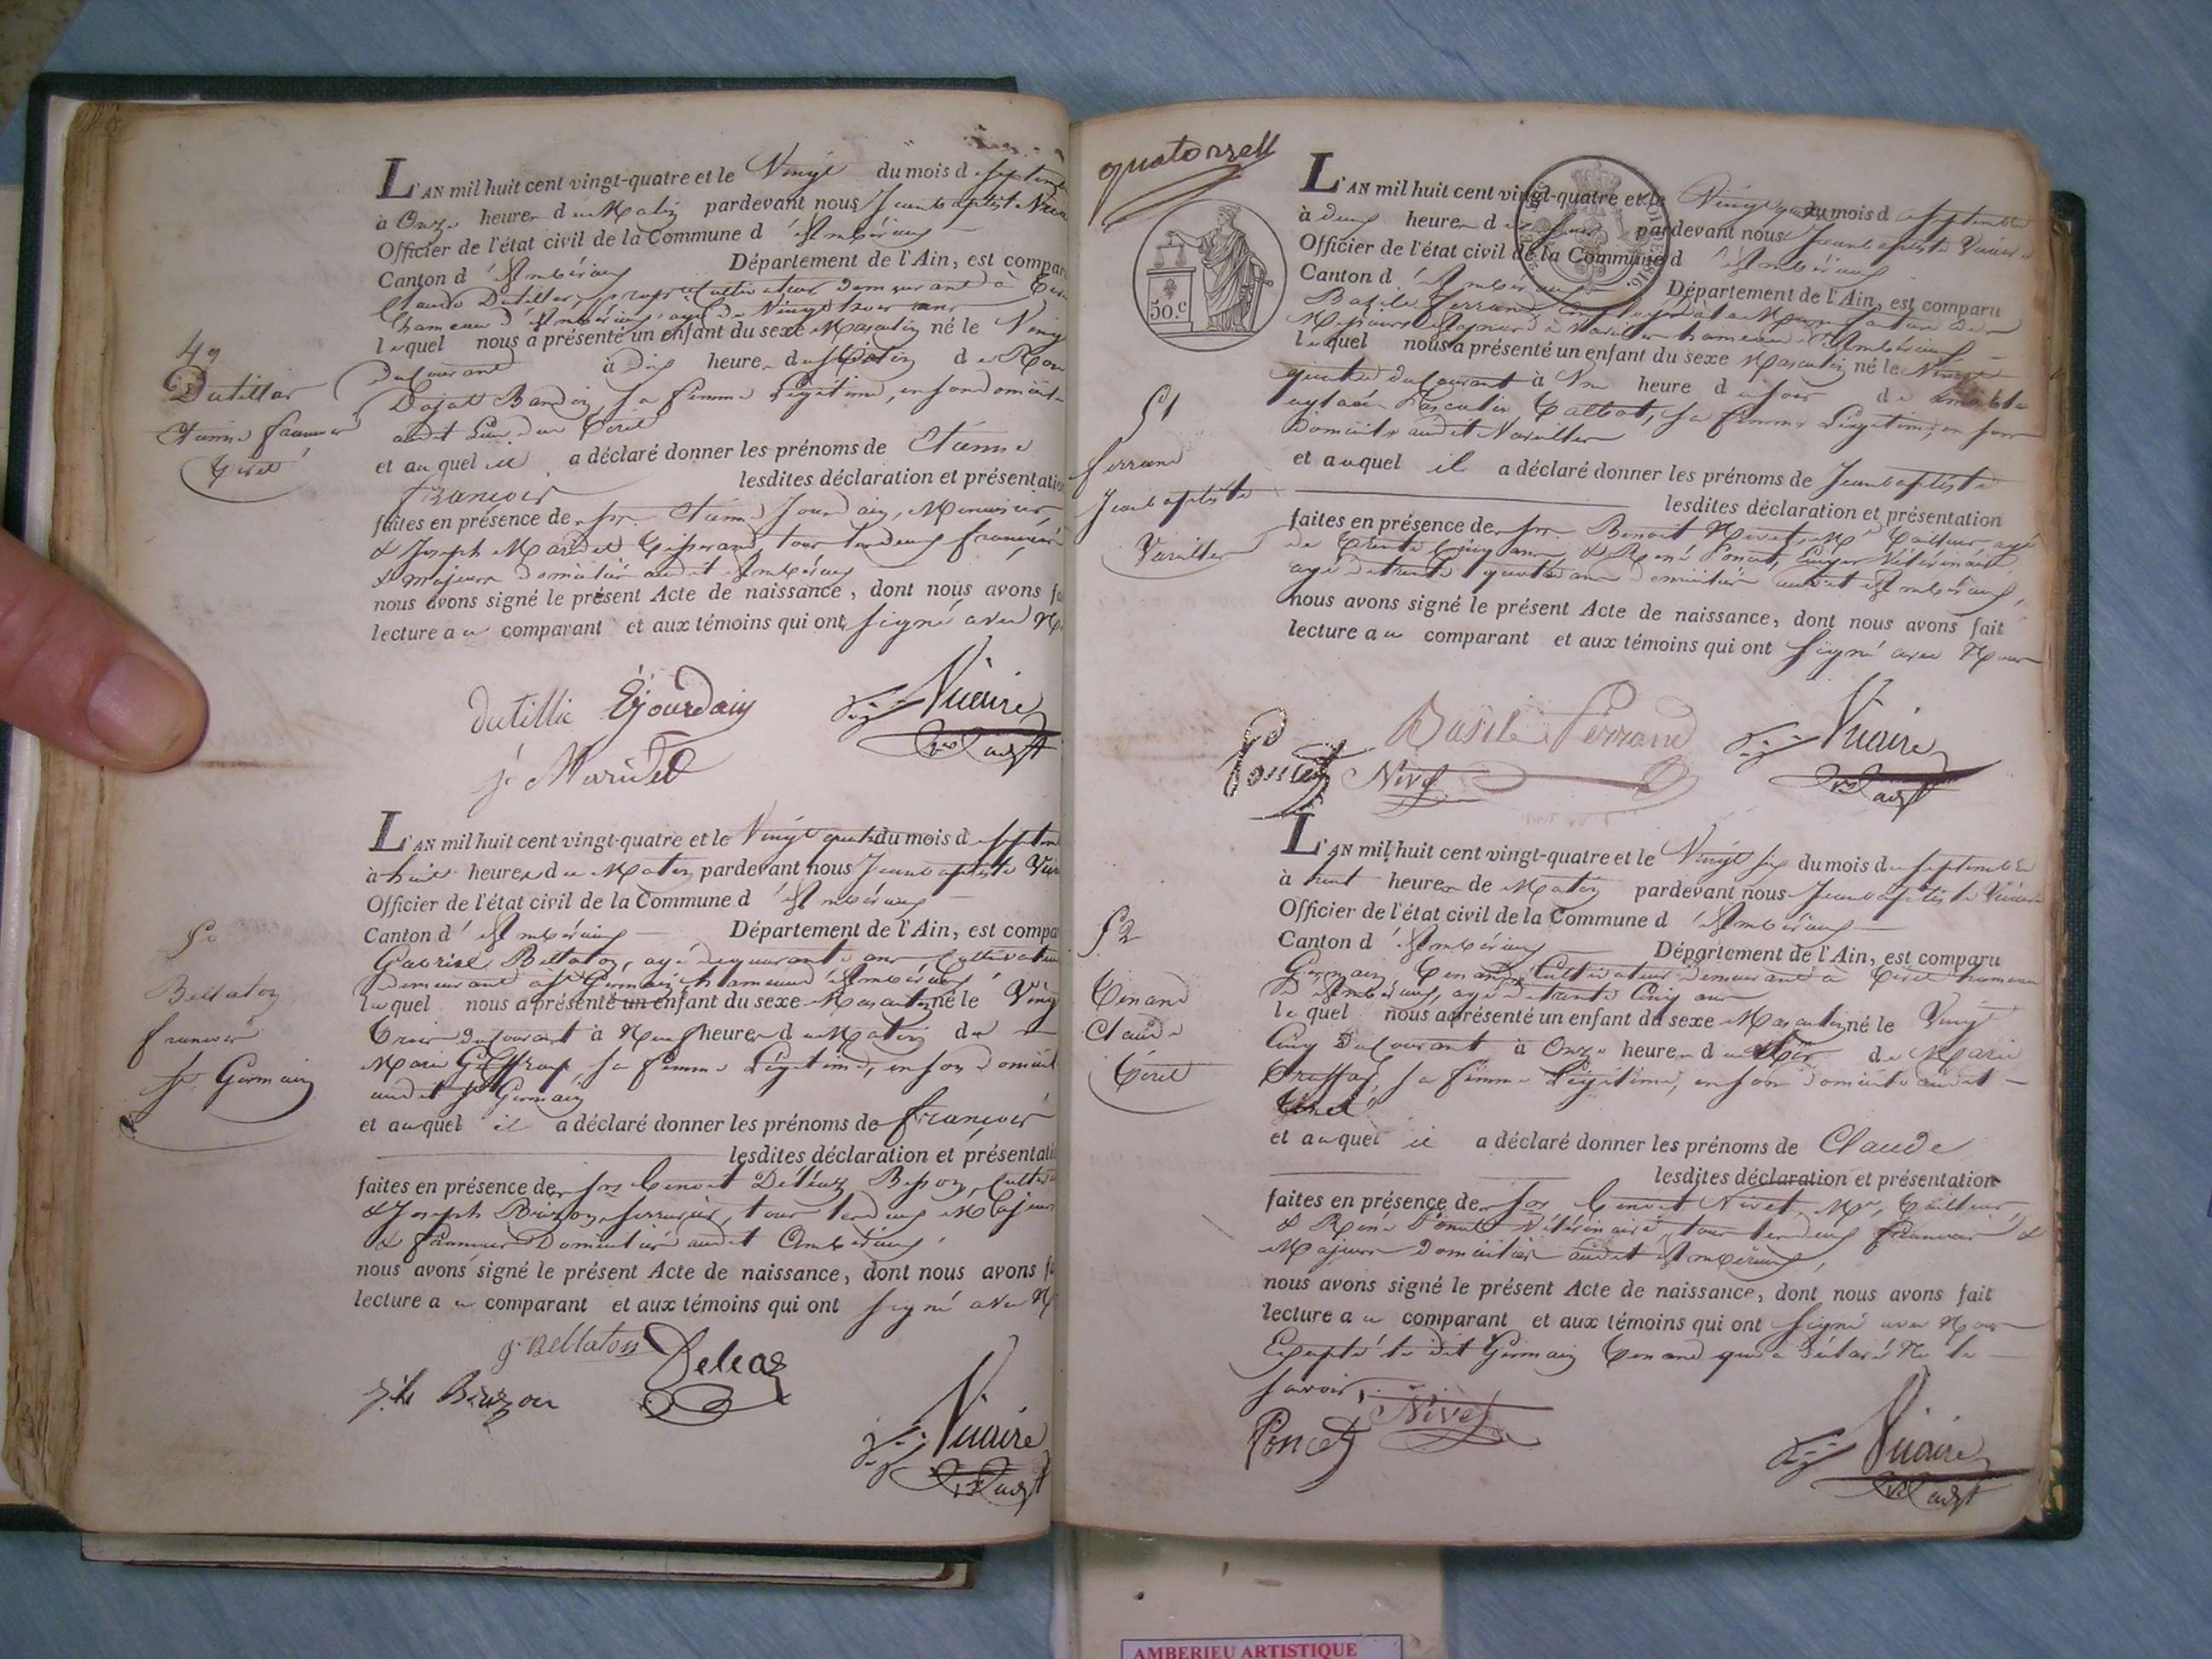 49
Dutillier
Etienne françois
Tiret
L'AN mil huit cent vingt-quatre et le Vingt du mois de septembre
à Onze heures du Matin pardevant nous Jean baptiste
Officier de l'état civil de la Commune d'Ambérieux
Canton d'Ambérieux Département de l'Ain, est compar
Claude Dutillier, propre Cultivateur demeurant à
hameau d'Ambérieux, agé de Vingt trois ans
lequel nous a présenté un enfant du sexe Masculin né le Vingt
du Courant à dix heures du Matin de
sa femme Légitime, en son domicile
audit Lieu de Tiret
et auquel il a déclaré donner les prénoms de Etienne
françois lesdites déclaration et présentation
faites en présence de srs. Etienne Jourdain, Menuisier
& Joseph Maridet Tisserand tous les deux français
& majeurs domiciliés audit Ambérieux
nous avons signé le présent Acte de naissance, dont nous avons
lecture au comparant et aux témoins qui ont signé avec
dutillie EJourdain Vicaire
j. Maridet
50
Bellaton
françois
st. Germain
L'AN mil huit cent vingt-quatre et le Vingt quatre du mois de
à huit heures du Matin pardevant nous Jean baptiste
Officier de l'état civil de la Commune d'Ambérieux
Canton d'Ambérieux Département de l'Ain, est compa
Gabriel Bellaton, agé de quarante ans Cultivateur
demeurant à st Germain hameau d'Ambérieux
lequel nous a présenté un enfant du sexe Masculin né le Vingt
trois du Courant à Neuf heures du Matin de
Marie sa femme Légitime, en son domicile
audit st Germain
et auquel il a déclaré donner les prénoms de françois
lesdites déclaration et présentati
faites en présence de srs Benoit
& Joseph Brizon serrurier, tous les deux Majeurs
& français Domiciliés audit Ambérieux
nous avons signé le présent Acte de naissance, dont nous avons
lecture au comparant et aux témoins qui ont signé avec
g. Bellaton Deleaz
Vicaire
quatorze
50.c
51
ferrand
Jean baptiste
Vareilles
L'AN mil huit cent vingt-quatre et le Vingt du mois de septembre
à deux heures du soir pardevant nous Jean baptiste
Officier de l'état civil de la Commune d'Ambérieux
Canton d'Ambérieux Département de l'Ain, est comparu
Basile ferrand
à Vareilles hameau d'Ambérieux
lequel nous a présenté un enfant du sexe Masculin né le Vingt
quatre du Courant à Une heure du soir de
sa femme Légitime, en son
Domicile audit Vareilles
et auquel il a déclaré donner les prénoms de Jean baptiste
lesdites déclaration et présentation
faites en présence de srs. Benoit Nivet, Md Tailleur, agé
de trente Cinq ans & René Poncet, Vétérinaire
agé de trente quatre ans domiciliés audit Ambérieux,
nous avons signé le présent Acte de naissance, dont nous avons fait
lecture au comparant et aux témoins qui ont signé avec Nous
Basile Ferrand Vicaire
Poncet Nivet
52
Tenand
Claude
Tiret
L'AN mil huit cent vingt-quatre et le Vingt six du mois de septembre
à huit heures de Matin pardevant nous Jean baptiste
Officier de l'état civil de la Commune d'Ambérieux
Canton d'Ambérieux Département de l'Ain, est comparu
Germain Tenand, Cultivateur demeurant à Tiret hameau
d'Ambérieux, agé de trente Cinq ans
lequel nous a présenté un enfant du sexe Masculin né le Vingt
Cinq du Courant à Onze heures du de Marie
sa femme Légitime, en son domicile audit
Tiret
et auquel il a déclaré donner les prénoms de Claude
lesdites déclaration et présentation
faites en présence de srs Benoit Nivet, Md, Tailleur,
& René Poncet Vétérinaire, tous les deux français &
Majeurs Domiciliés audit Ambérieux,
nous avons signé le présent Acte de naissance, dont nous avons fait
lecture au comparant et aux témoins qui ont signé avec Nous
Excepté le dit Germain Tenand qui a déclaré Ne le
savoir,
Poncet Nivet Vicaire
AMBERIEU ARTISTIQUE